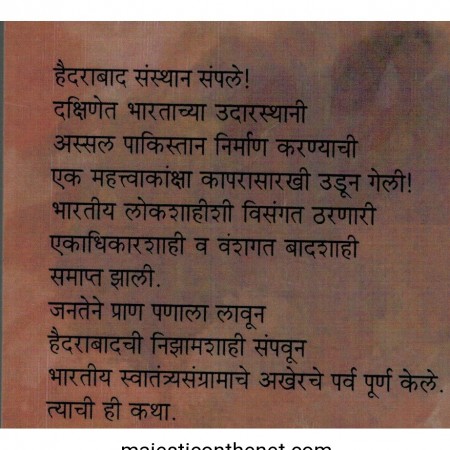 हैदराबाद संस्थान संपले!
दक्षिणेत भारताच्या उदारस्थानी
अस्सल पाकिस्तान निर्माण करण्याची
एक महत्त्वाकांक्षा कापरासारखी उडून गेली!
भारतीय लोकशाहीशी विसंगत ठरणारी
एकाधिकारशाही व वंशागत बादशाही
समाप्त झाली.
जनतेने प्राण पणाला लावून
हैदराबादची निझामशाही संपवून
भारतीय स्वातंत्र्यसंग्रामाचे अखेरचे पर्व पूर्ण केले.
त्याची ही कथा.
majesticonthenet.com